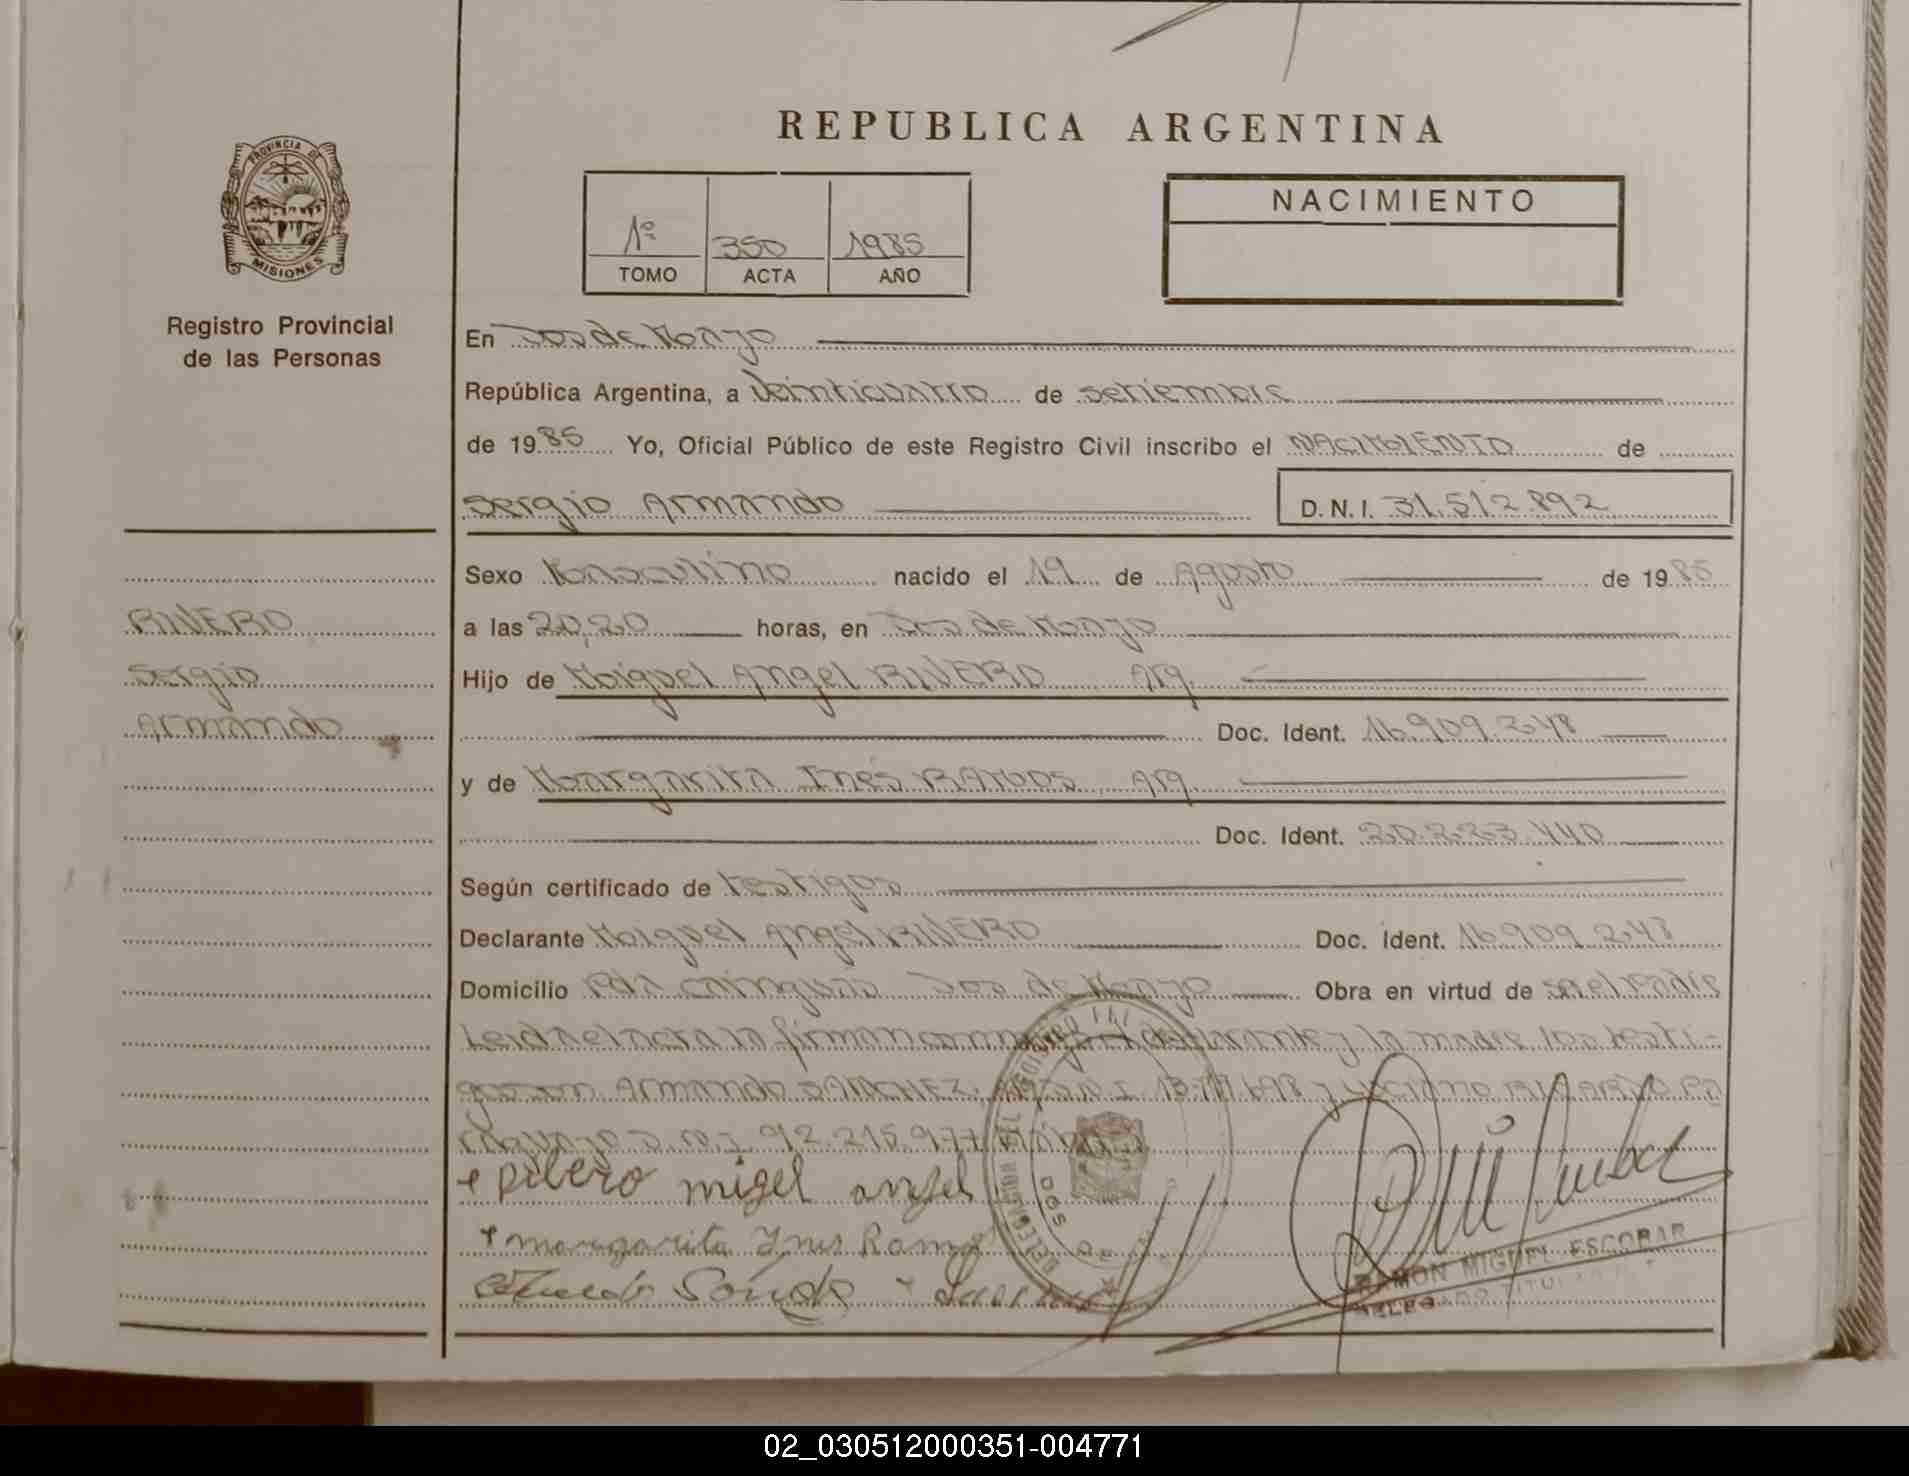 REPUBLICA ARGENTINA
PROVINCIA DE
MISIONES
Registro Provincial
de las Personas
1º 350 1985
TOMO ACTA AÑO
NACIMIENTO
En Dos de Mayo
República Argentina, a Veinticuatro de setiembre
de 1985 Yo, Oficial Público de este Registro Civil inscribo el NACIMIENTO de
Sergio Armando
D.N.I. 31.512.892
RIVERO
Sergio
Armando
Sexo Masculino nacido el 19 de Agosto de 1985
a las 20,20 horas, en Dos de Mayo
Hijo de Miguel Angel RIVERO Arg.
Doc. Ident. 16.909.248
y de Margarita Inés RAMOS, Arg.
Doc. Ident. 20.223.440
Según certificado de testigos
Declarante Miguel Angel RIVERO Doc. Ident. 16.909.248
Domicilio Pda cainguas Dos de Mayo Obra en virtud de ser el Padre
Leida el acta la firman conmigo el declarante y la madre los testi-
gos son Armando SANCHEZ, Arg. D.N.I.
D.N.I. 92.215.977
+ Ribero migel angel
+ margarita Ynes Ramos
RAMON MIGUEL ESCOBAR
DELEGADO TITULAR
02_030512000351-004771